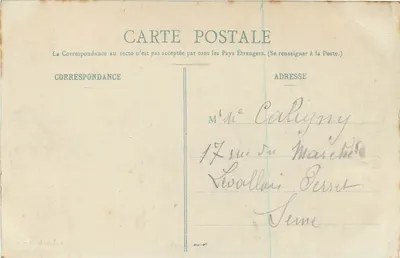 CARTE POSTALE
La Correspondance au recto n'est pas acceptée par tous les Pays Étrangers. (Se renseigner à la Poste.)
CORRESPONDANCE
ADRESSE
M Caligny
17 rue du Marché
Levallois Perret
Seine